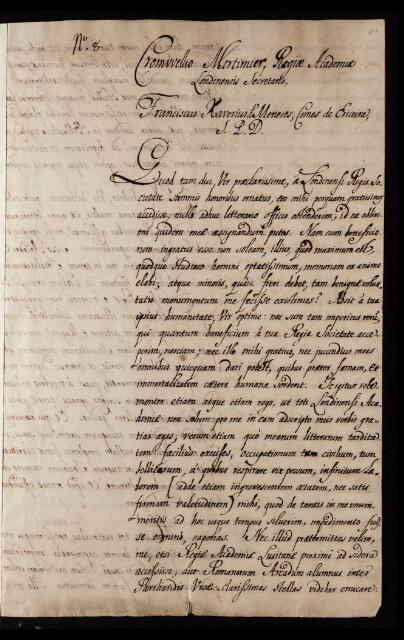 Nº 8.
Cromwellio Mortimer, Regiæ Academiæ
Londinensis Secretario,
Franciscus Xaverius de Meneses, Comes de Ericeira,
S. P. D.
Quod tam diu, Vir præclarissime, à Londinensi Regia So-
cietate summis honoribus ornatus, etsi mihi perquam gratissimum
accidisse, nullo adhuc litterario officio ostenderim, id ne oblivi-
oni quidem meæ assignandum putes. Nam cum beneficio
non ingratus esse non soleam, illius, quod maximum est,
quodque studioso homini optatissimum, memoriam ex animo
elabi; atque minoris, quàm fieri debet, tam benignæ volun-
tatis monumentum me fecisse existimes? Absit à tua
ipsius humanitate, Vir optime: nec sum tam imperitus rerum,
qui quantum beneficium à tua Regia Societate acce-
perim, nesciam; nec illo mihi gratius, nec jucundius meis
omnibus quicquam dari potest, quibus præter famam, et
immortalitatem cætera humana sordent. Te igitur vehe-
menter etiam atque etiam rogo, ut toti Londinensi Aca-
demiæ non solum pro me in eam adscripto meis verbis gra-
tias agas; verum etiam quo mearum litterarum tardita-
tem facilius excuses, occupationum tum civilium, tum
bellicarum, à quibus respirare vix possum, infinitum la-
borem (adde etiam ingravescentem ætatem, nec satis
firmam valetudinem) mihi, quod de tantis in me numm.
meritis ad hoc usque tempus siluerim, impedimento fuis-
se omnino, exponas. Nec illud prætermittas velim,
me, etsi Regiæ Academiæ Lusitanæ proximi ad sidera
accessisse; aut Romanorum Arcadum alumnus inter
Parrhasidis Ursæ clarissimas stellas videbar emicare: